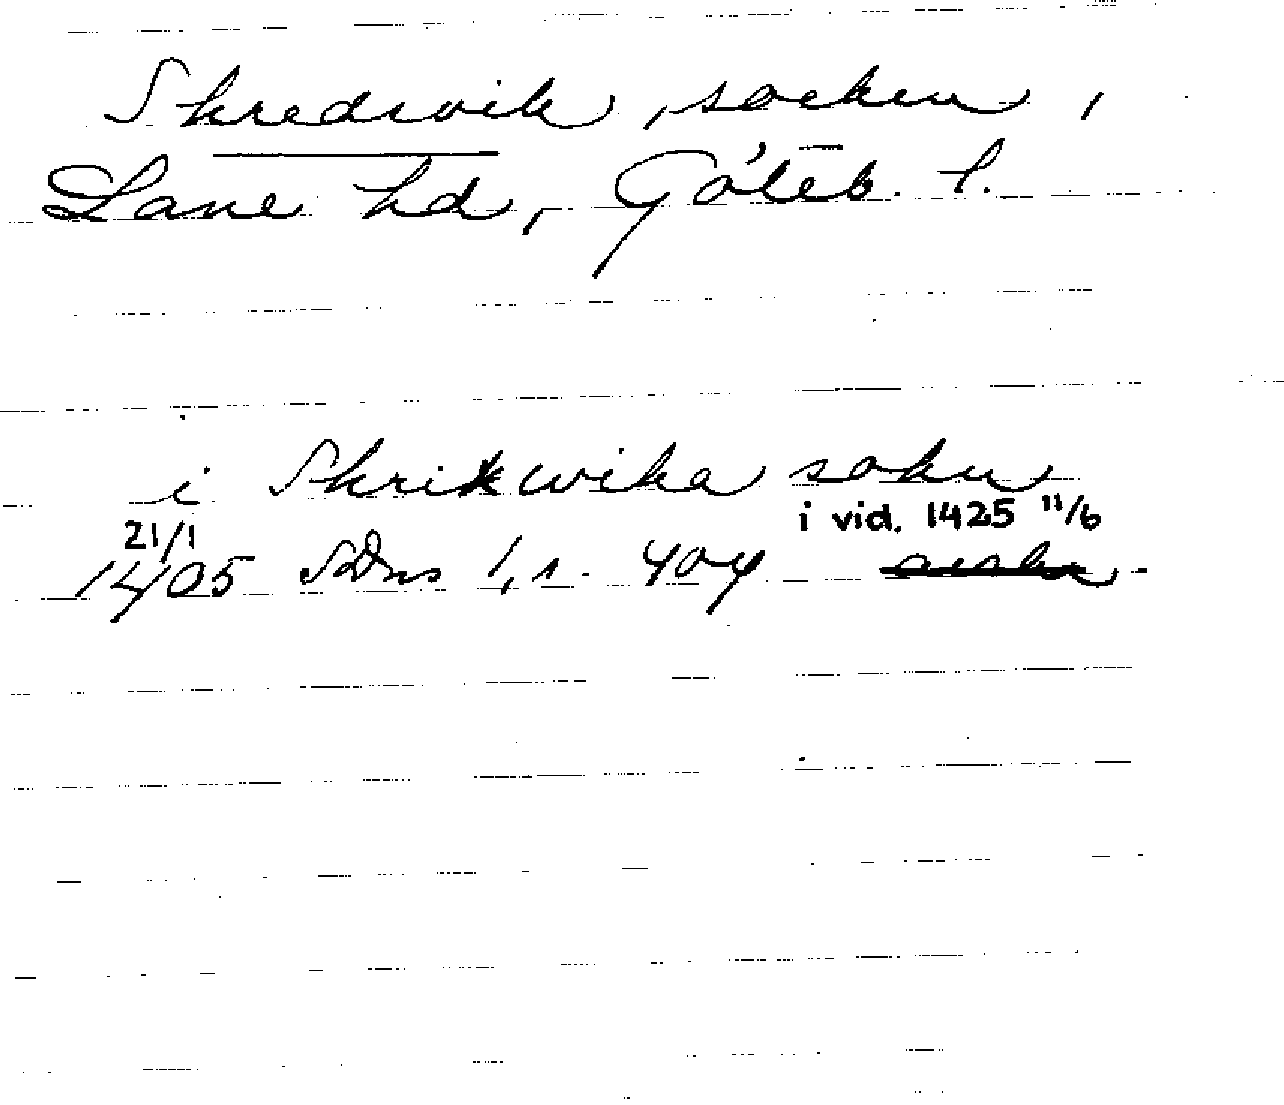 Skredsvik, socken,
Lane hd, Göteb. l.
i Skrikwika sokn
21/1 i vid. 1425 11/6
1405 SDns 1, s. 404